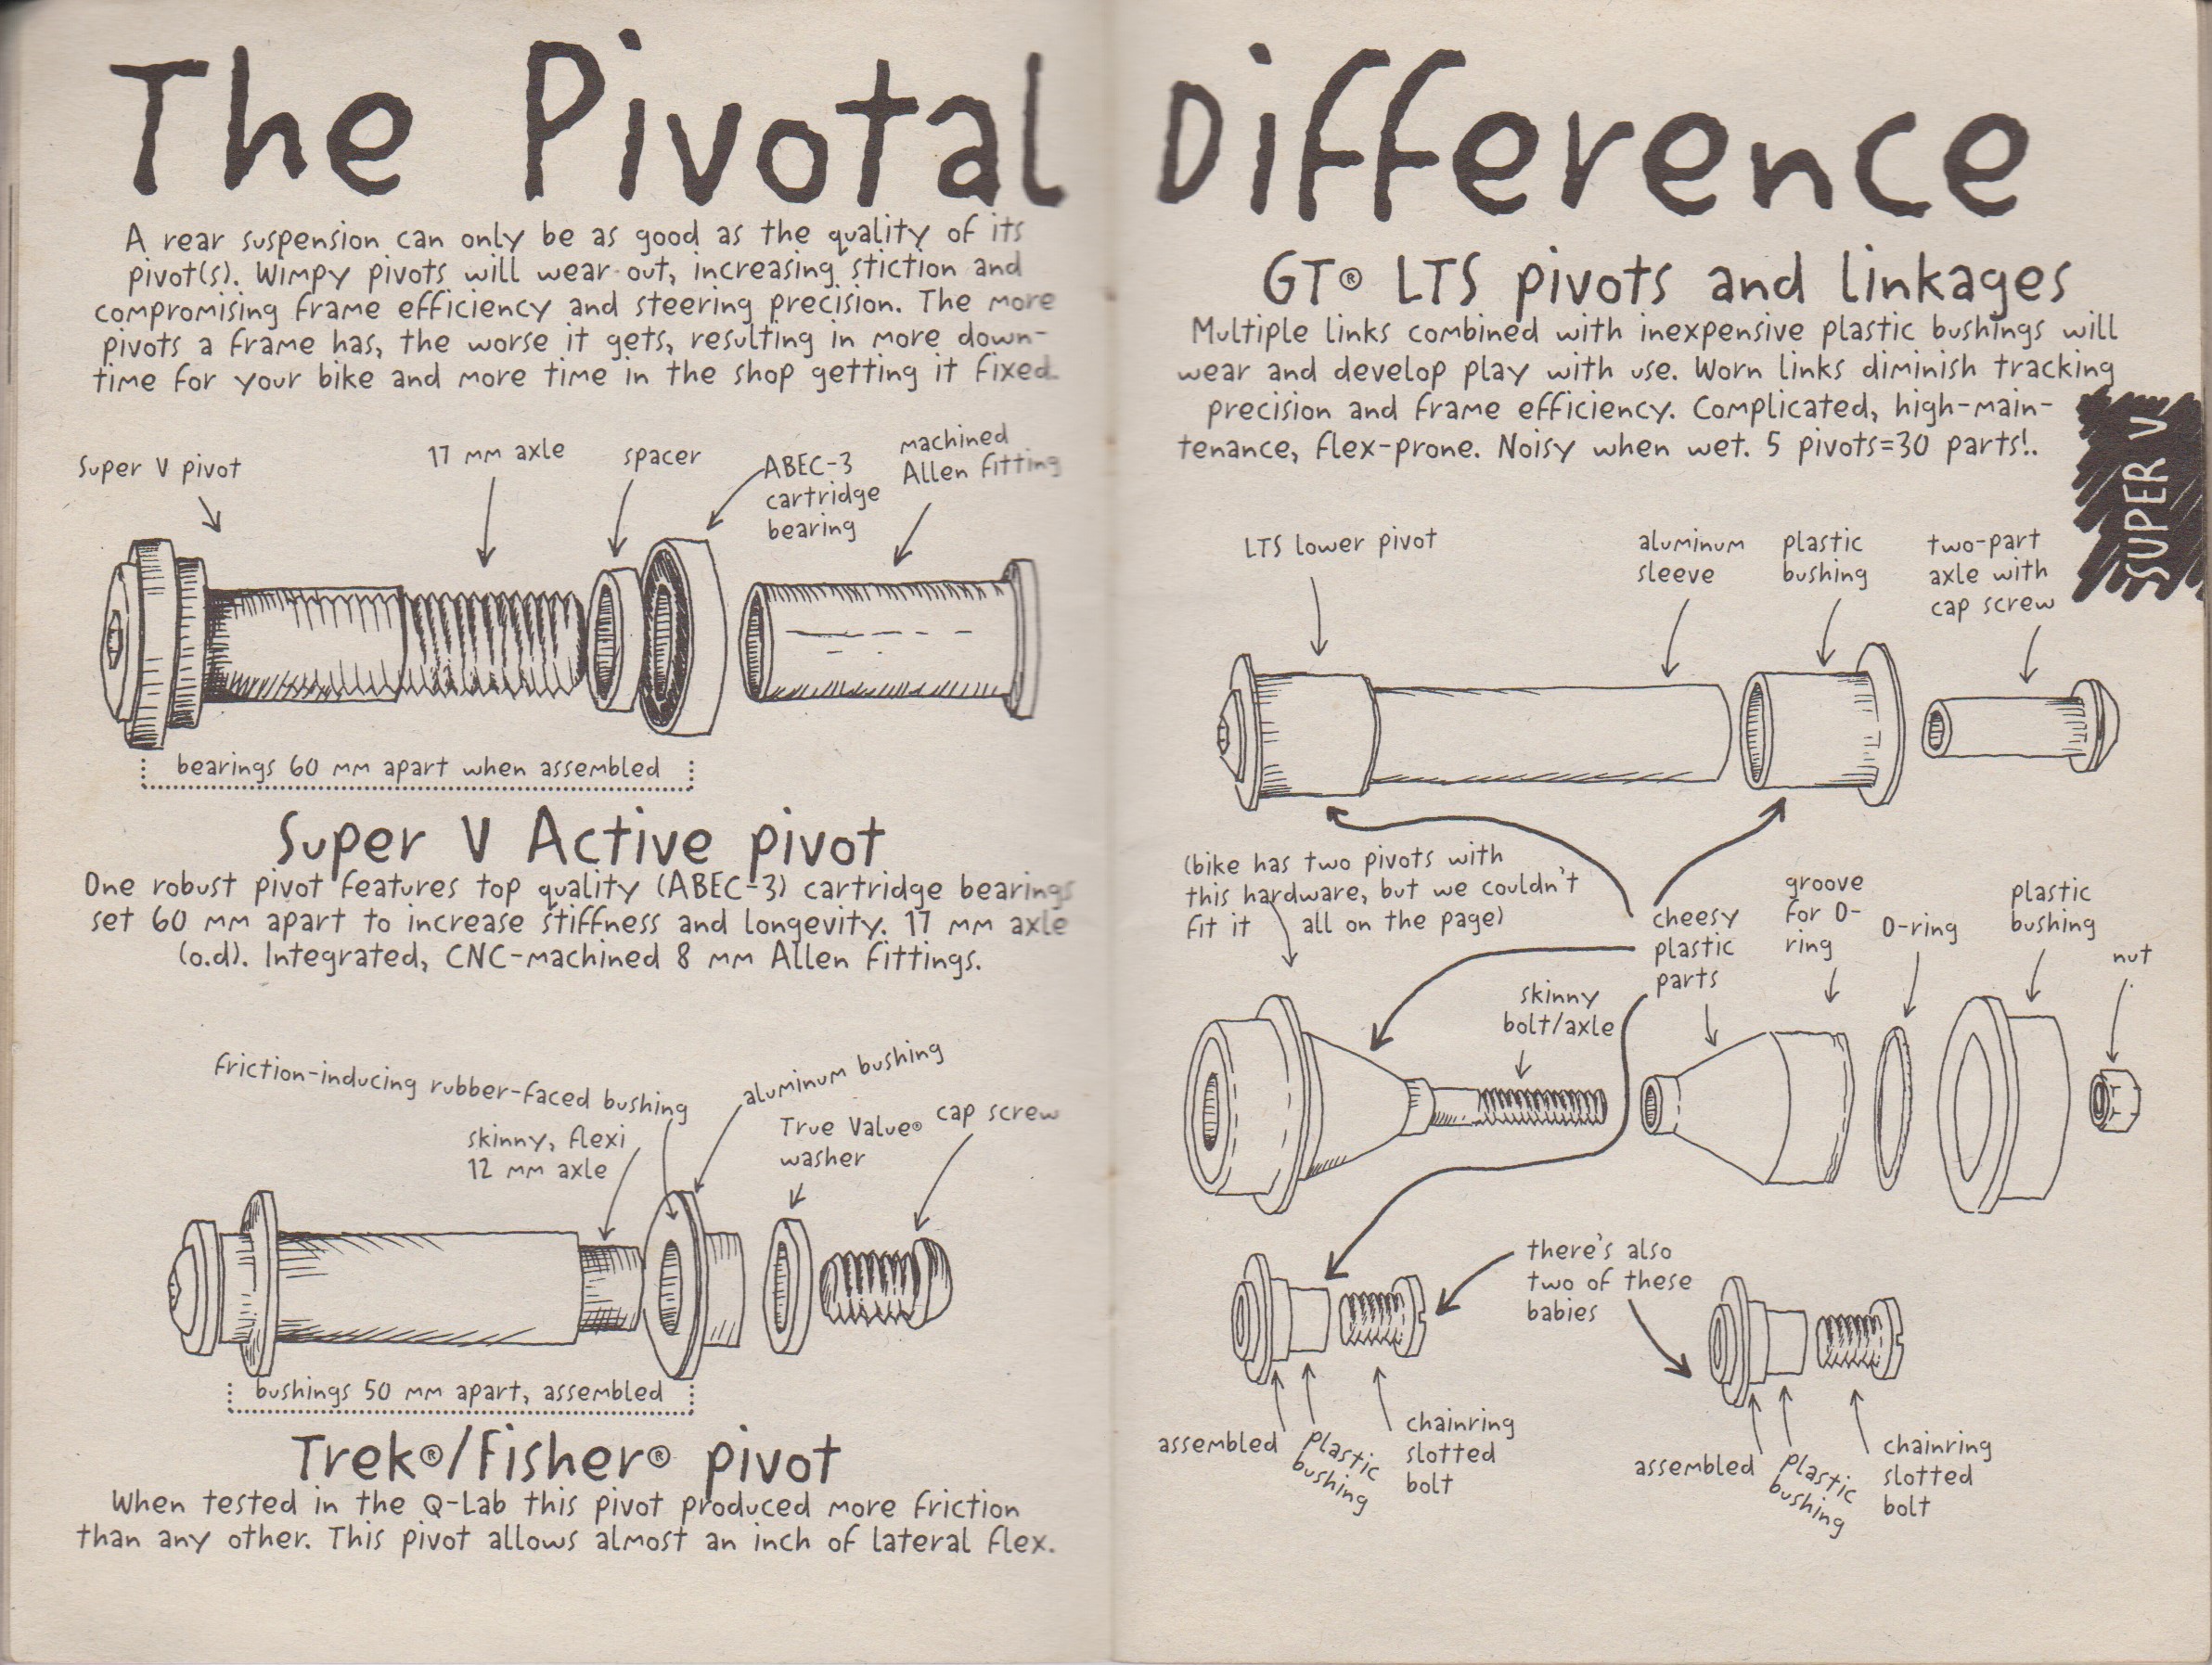 The Pivotal Difference
A rear suspension can only be as good as the quality of its
pivot(s). Wimpy pivots will wear out, increasing stiction and
compromising frame efficiency and steering precision. The more
pivots a frame has, the worse it gets, resulting in more down-
time for your bike and more time in the shop getting it fixed.
Super V pivot
17 mm axle
spacer
ABEC-3
cartridge
bearing
machined
Allen fitting
bearings 60 mm apart when assembled
Super V Active pivot
One robust pivot features top quality (ABEC-3) cartridge bearings
set 60 mm apart to increase stiffness and longevity. 17 mm axle
(o.d). Integrated, CNC-machined 8 mm Allen fittings.
friction-inducing rubber-faced bushing
skinny, flexi
12 mm axle
aluminum bushing
True Value®
washer
cap screw
bushings 50 mm apart, assembled
Trek®/Fisher® pivot
When tested in the Q-Lab this pivot produced more friction
than any other. This pivot allows almost an inch of lateral flex.
GT® LTS pivots and linkages
Multiple links combined with inexpensive plastic bushings will
wear and develop play with use. Worn links diminish tracking
precision and frame efficiency. Complicated, high-main-
tenance, flex-prone. Noisy when wet. 5 pivots=30 parts!.
SUPER V
LTS lower pivot
aluminum
sleeve
plastic
bushing
two-part
axle with
cap screw
(bike has two pivots with
this hardware, but we couldn't
fit it all on the page)
cheesy
plastic
parts
skinny
bolt/axle
groove
for O-
ring
O-ring
plastic
bushing
nut
there's also
two of these
babies
assembled
plastic
bushing
chainring
slotted
bolt
assembled
plastic
bushing
chainring
slotted
bolt